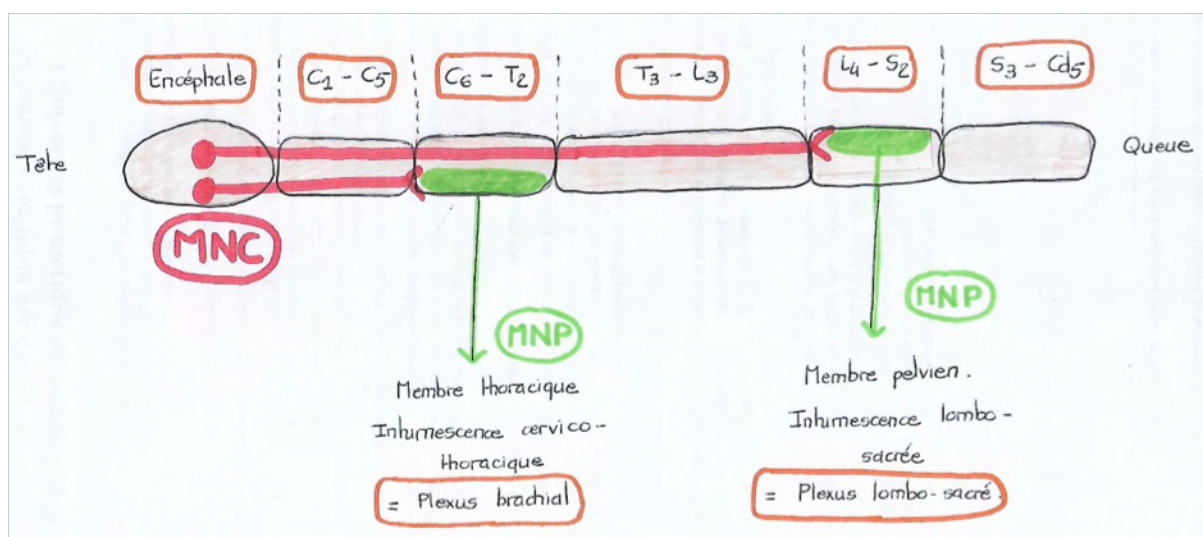 Encéphale
C1 - C5
C6 - T2
T3 - L3
L4 - S2
S3 - Cd5
Tête
Queue
MNC
MNP
MNP
Membre thoracique
Intumescence cervico-
thoracique
= Plexus brachial
Membre pelvien.
Intumescence lombo-
sacrée
= Plexus lombo-sacré.